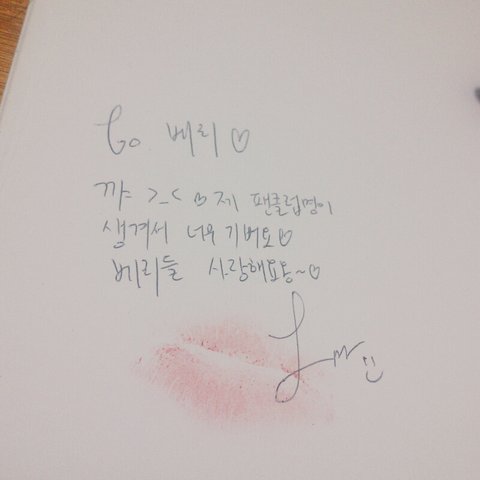 To. 베리♡
꺄 >_< ♡ 제 팬클럽명이
생겨서 너무 기뻐요♡
베리들 사랑해요옹~♡